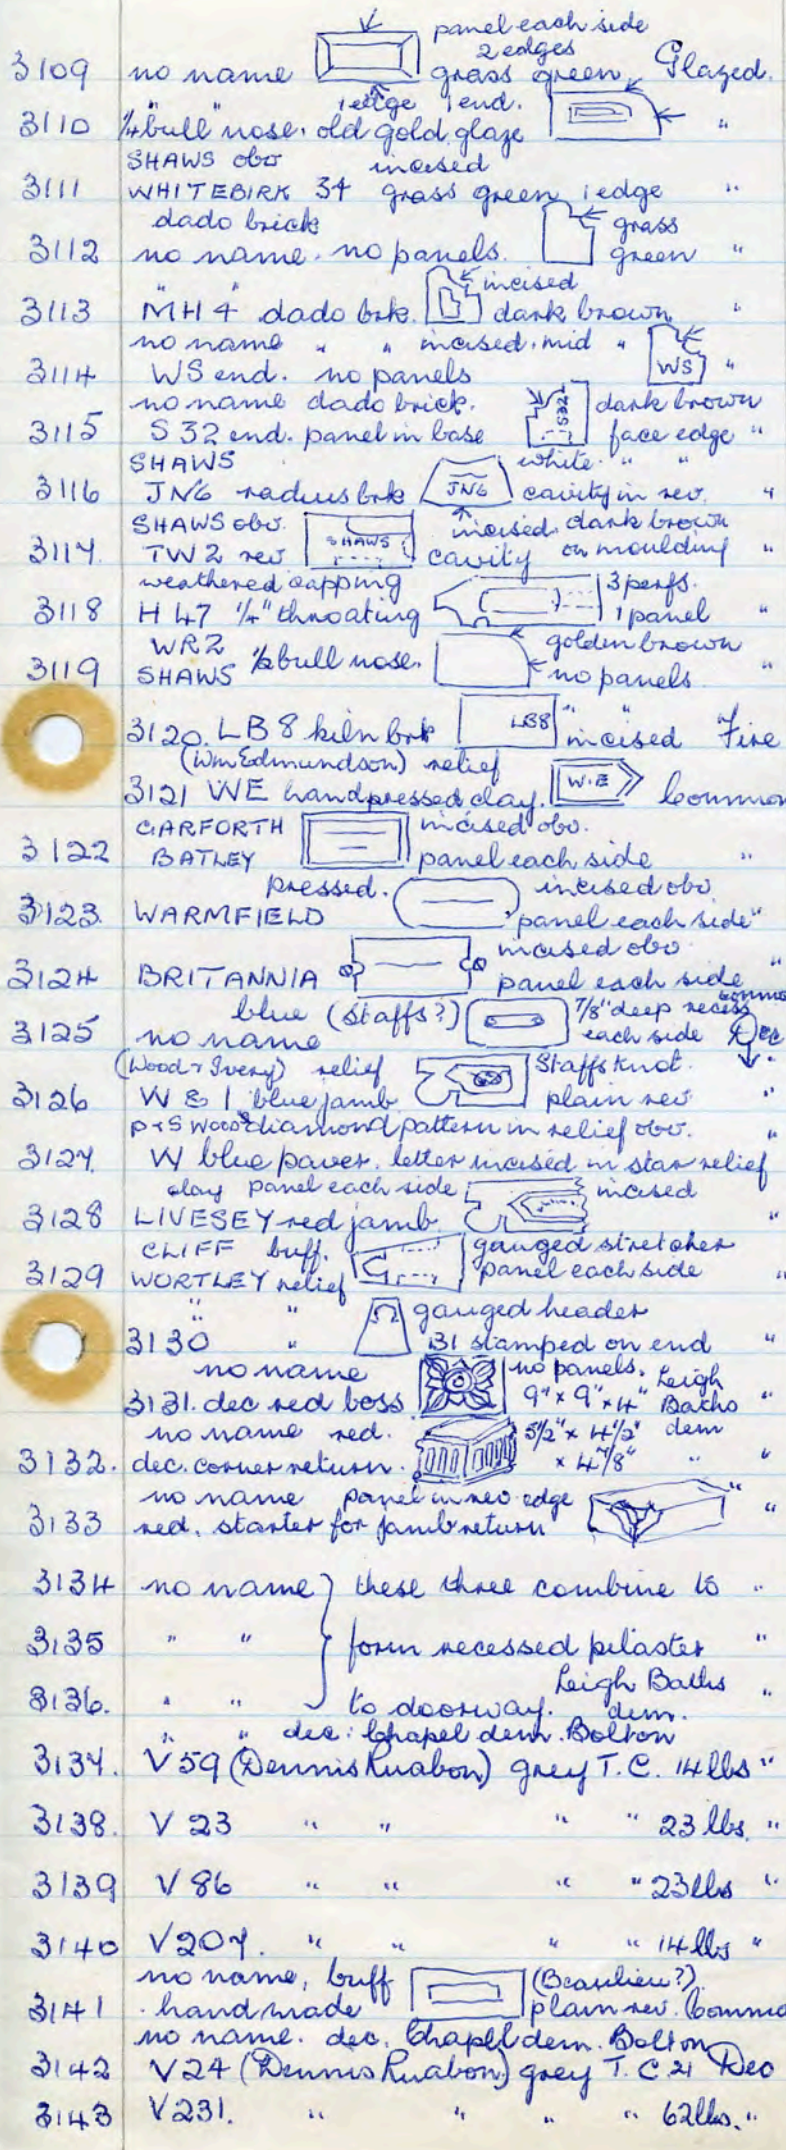 panel each side
2 edges
3109 no name grass green Glazed.
1 edge 1 end.
3110 ¼" bull" nose. old gold glaze "
SHAWS obo incised
3111 WHITEBIRK 34 grass green 1 edge "
dado brick grass
3112 no name. no panels. green "
" " incised
3113 MH 4 dado brk. dark brown "
no name " " incised. mid "
3114 WS end. no panels WS "
no name dado brick. dark brown
3115 S 32 end. panel in base S 32 face edge "
SHAWS white " "
3116 JN6 radius brk JN6 cavity in rev. "
SHAWS obv. incised dark brown
3117. TW2 rev SHAWS cavity on moulding "
weathered capping 3 perfs.
3118 H 47 ¼" throating 1 panel "
WR2 golden brown
3119 SHAWS ½ bull nose. no panels "
3120. LB 8 kiln brk LB8 " " incised Fire
(Wm Edmundson) relief
3121 WE handpressed clay. W.E Common
GARFORTH incised obo.
3122 BATLEY panel each side "
pressed. incised obo
3123. WARMFIELD panel each side "
incised obo
3124 BRITANNIA panel each side "
blue (Staffs?) 7/8" deep recess Common
3125 no name each side Dec
(Wood & Ivery) relief Staffs Knot. "
3126 W & I blue jamb plain rev "
P & S Wood diamond pattern in relief obv. "
3127. W blue paver. letter incised in star relief
clay panel each side incised
3128 LIVESEY red jamb "
CLIFF buff. gauged stretcher
3129 WORTLEY relief panel each side "
" " gauged header
3130 " 131 stamped on end "
no name no panels. Leigh
3131. dec red boss 9" x 9" x 4" Baths "
no name red. 5½" x 4½" dem
3132. dec. corner return. x 4⅞" " "
no name panel in rev edge "
3133 red. starter for jamb return "
3134 no name } these three combine to "
3135 " " form recessed pilaster "
3136. " " to doorway. Leigh Baths dem. "
" " dec: Chapel dem. Bolton
3137. V 59 (Dennis Ruabon) grey T.C. 14 lbs "
3138. V 23 " " " " 23 lbs. "
3139 V 86 " " " " 23 lbs "
3140 V 207. " " " " 14 lbs "
no name, buff (Beaulieu?)
3141 . handmade plain rev. Common
no name. dec. Chapel dem. Bolton
3142 V 24 (Dennis Ruabon) grey T.C 21 Dec
3143 V 231. " " " " 62 lbs. "